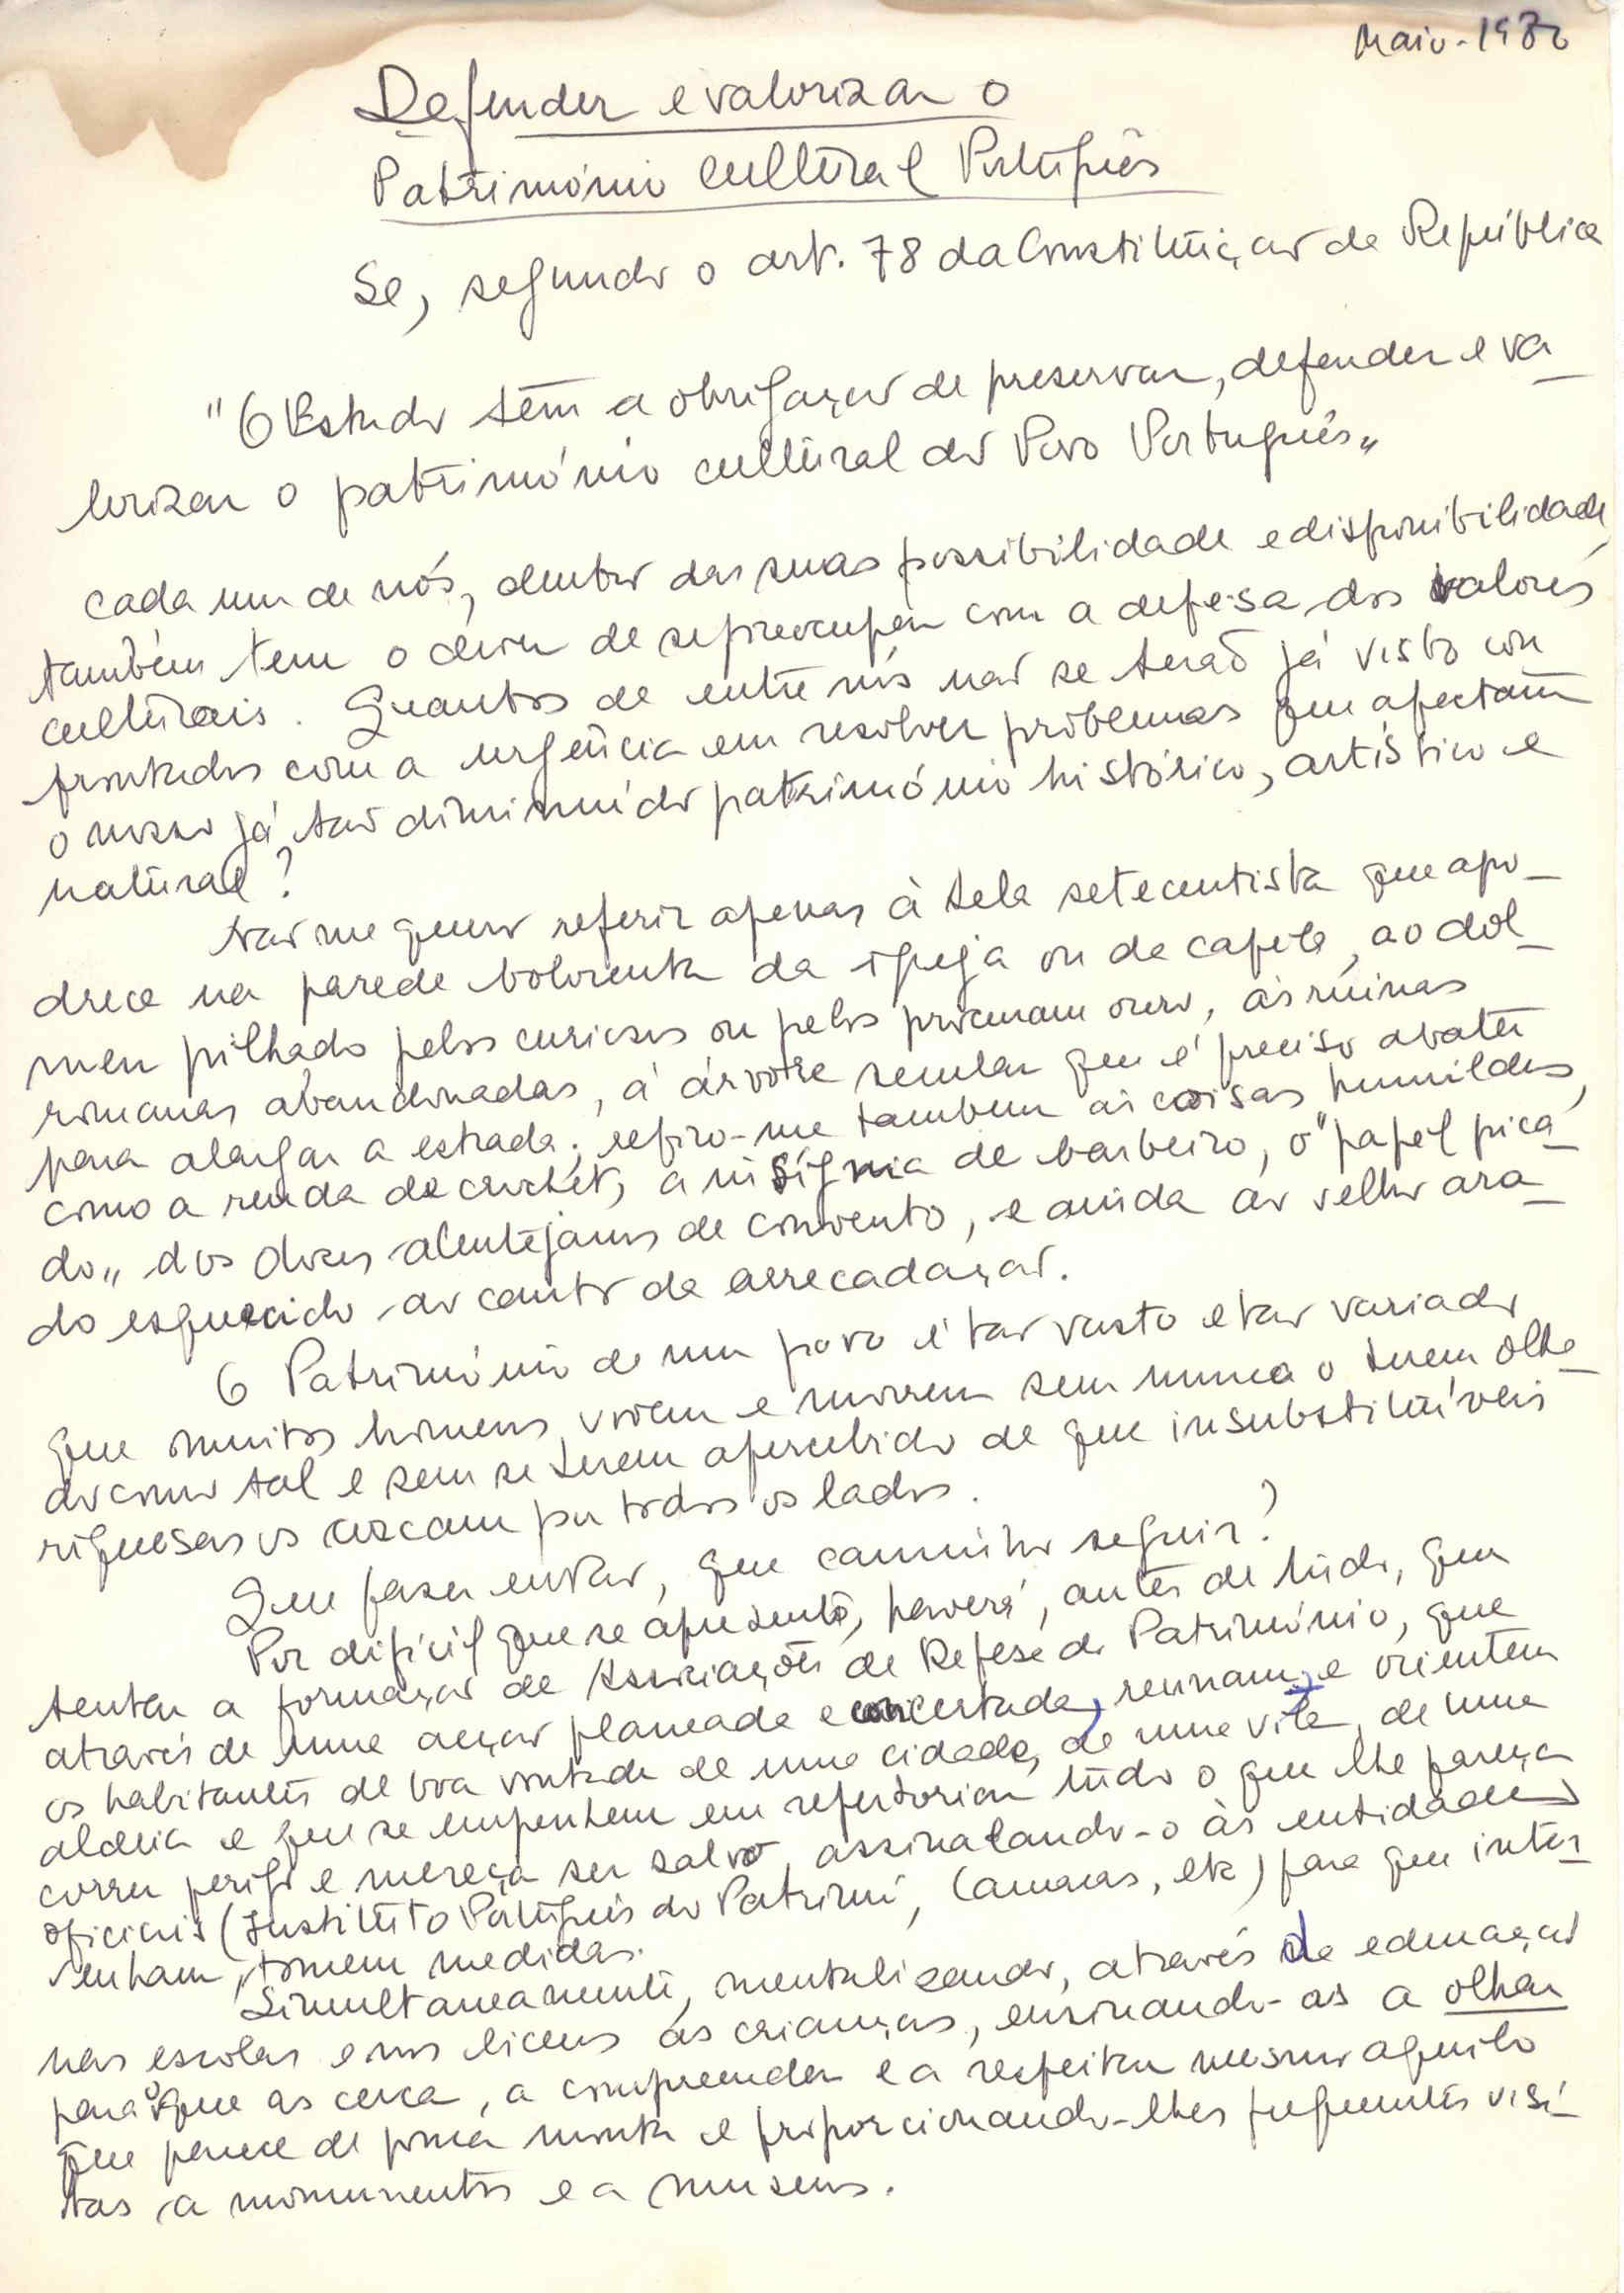 Maio - 1980
Defender e valorizar o
Património Cultural Português
Se, segundo o art. 78 da Constituição da República
"O Estado têm a obrigação de preservar, defender e va-
lorizar o património cultural do Povo Português"
cada um de nós, dentro das suas possibilidade e disponibilidade,
também tem o dever de se preocupar com a defesa dos valores
culturais. Quantos de entre nós não se terão já visto con
frontados com a urgência em resolver problemas que afectam
o nosso já tão diminuído património histórico, artístico e
natural?
Não me quero referir apenas à tela setecentista que apo-
drece na parede bolorenta da igreja ou da capela, ao dol-
men pilhado pelos curiosos ou pelos procuram ouro, às ruinas
romanas abandonadas, à árvore secular que é preciso abater
para alargar a estrada; refiro-me também às coisas humildes,
como a renda de crochet, a insígnia de barbeiro, o "papel pica-
do" dos doces alentejanos de convento, e ainda ao velho ara-
do esquecido ao canto da arrecadação.
O Património de um povo é tão vasto e tão variado
que muitos homens vivem e morrem sem nunca o terem olha-
do como tal e sem se terem apercebido de que insubstituíveis
riquesas os cercam por todos os lados.
Que fazer então, que caminho seguir?
Por difícil que se apresente, haverá, antes de tudo, que
tentar a formação de Associações de Defesa do Património, que
através de uma acção planeada e concertada, reunam e orientem
os habitantes de boa vontade de uma cidade, de uma vila, de uma
aldeia e que se empenhem em reportoriar tudo o que lhe pareça
correr perigo e mereça ser salvo, assinalando-o às entidades
oficiais (Instituto Português do Patrimó, Camaras, etc) para que inter-
venham, tomem medidas.
Simultaneamente, mentalizando, através da educação
nas escolas e nos liceus as crianças, ensinando-as a olhar
para o que as cerca, a compreender e a respeitar mesmo aquilo
que parece de pouca monta e proporcionando-lhes frequentes visi-
tas a monumentos e a museus.